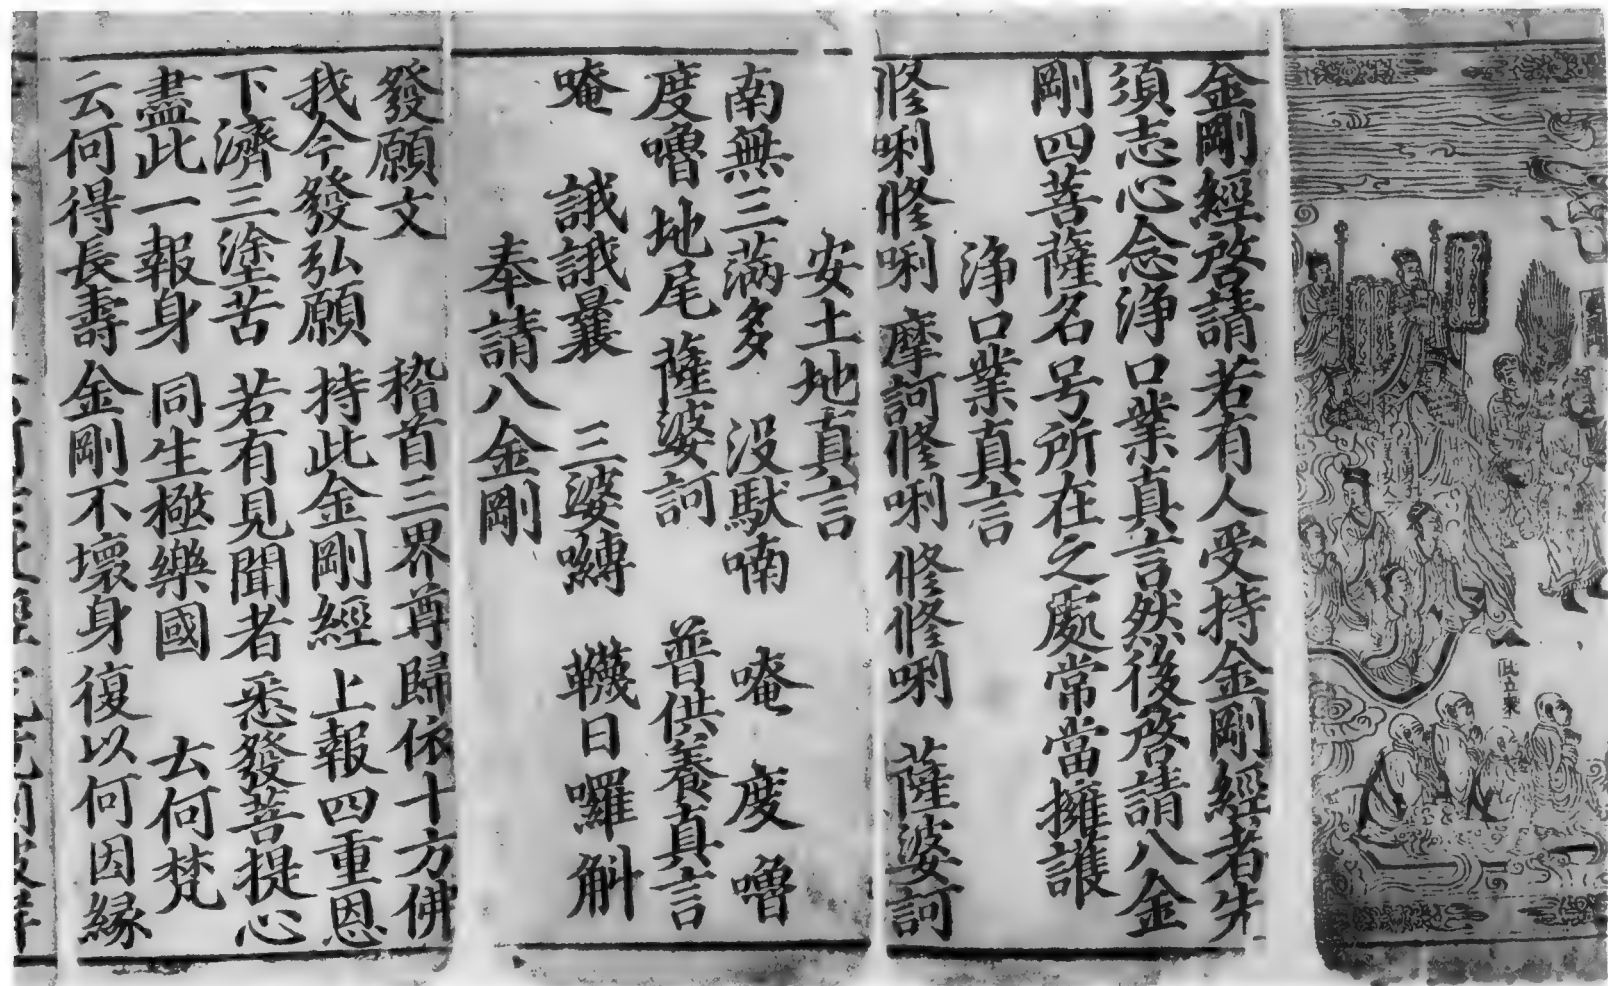 金剛經啓請 若有人受持金剛經者先
須志心念淨口業真言然後啓請八金
剛四菩薩名号所在之處常當擁護
淨口業真言
脩唎脩唎 摩訶脩唎 脩脩唎 薩婆訶
安土地真言
南無三滿多 沒馱喃 唵 度嚕
度嚕地尾 薩婆訶 普供養真言
唵 誐誐曩 三婆嚩 韈日囉斛
奉請八金剛
發願文 稽首三界尊歸依十方佛
我今發弘願 持此金剛經 上報四重恩
下濟三塗苦 若有見聞者 悉發菩提心
盡此一報身 同生極樂國 云何梵
云何得長壽 金剛不壞身 復以何因緣